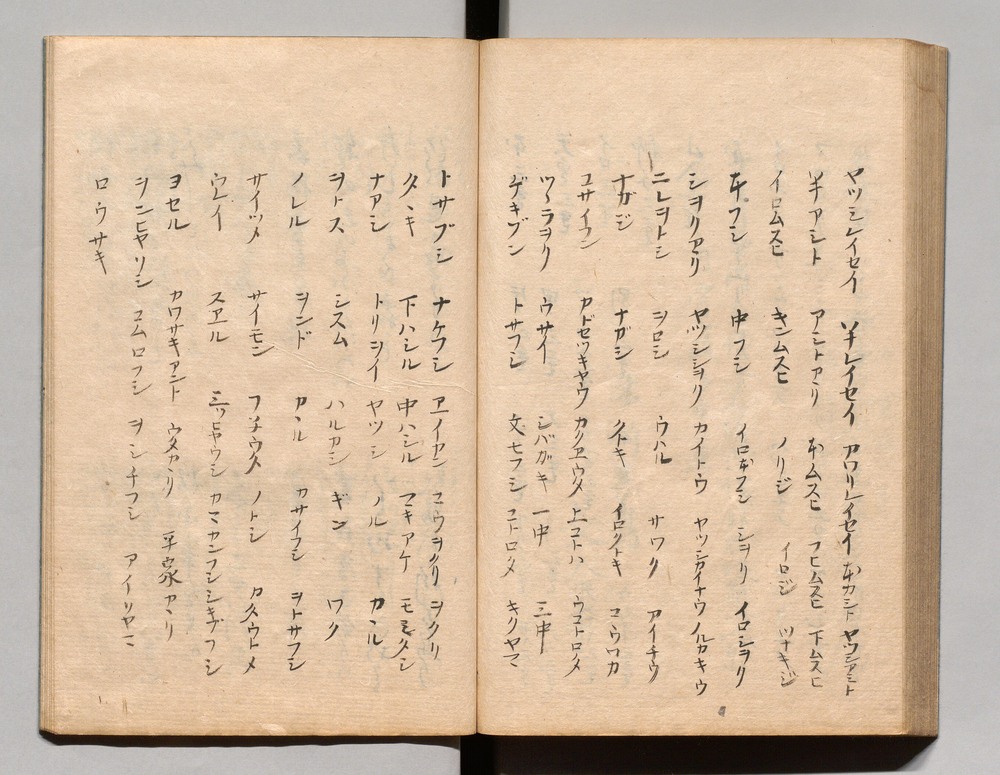 ヤツシレイセイ 半レイセイ アワリレイセイ 本カシト ヤツシアシト
半アシト アシトアリ 本ムスヒ フヒムスヒ 下ムスヒ
イロムスヒ キンムスヒ ノリジ イロジ ツナキジ
本フシ 中フシ イロ本フシ シヲリ イロシヲリ
シヲリアリ ヤツシシヲリ カイトウ ヤツシカイナウ ノルカキウ
ニレヲトシ ヨロシ ウハル サワリ アイチウ
ナガジ ナガシ クトキ イロクトキ コウワカ
コサイフン カドセツキヤウ カクヱウタ 上コトハ ウコトロタ
ツヽラヲリ ウサイ シバガキ 一中 三中
ゲキブン トサフシ 文七フシ コトロタ キリヤマ
トサブシ ナケフシ ヱイヤン コウヲクリ ヲクリ
タヽキ 下ハシル 中ハシル マキアケ モミタシ
ナアシ トリヲイ ヤツシ ノル カヽル
ヲトス シスム ハルカシ ギン ワク
ノレル ヲンド カヽル カサイフシ ヲトサフシ
サイツメ サイモン フチウタ ノトシ カタウトメ
ウレイ スヱル 三ツヒヤウシ カマカンフシ シキブフシ
ヨセル カワサキアント ウタカヽリ 平家カヽリ
ヲンヒヤソシ コムロフシ ヨシチフシ アイリヤマ
ロウサキ